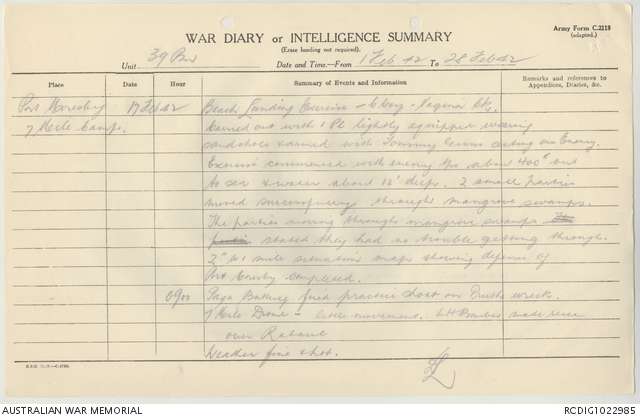 Army Form C.2118
(adapted.)
WAR DIARY or INTELLIGENCE SUMMARY
(Erase heading not required).
Unit 39 Bn Date and Time.—From 1 Feb 42 To 28 Feb 42
Place Date Hour Summary of Events and Information Remarks and references to
Appendices, Diaries, &c.
Port Moresby 17 Feb 42 Beach Landing Exercise - C Coy -
7 Mile Camp. Carried out with 1 Pl lightly equipped wearing
sandshoes & armed with Tommy Guns acting as Enemy.
Exercise commenced with enemy about 400ˣ out
to sea & water about deep. 2 small Parties
moved successfully through mangrove swamps.
The parties moving through mangrove swamps
stated they had no trouble getting through.
2" to 1 mile situation maps showing defence of
Port Moresby completed.
0900 Paga Battery fired practice shoot on wreck.
7 Mile Drome - little movement. made
over Rabaul
Weather fine & hot.
AUSTRALIAN WAR MEMORIAL
RCDIG1022985